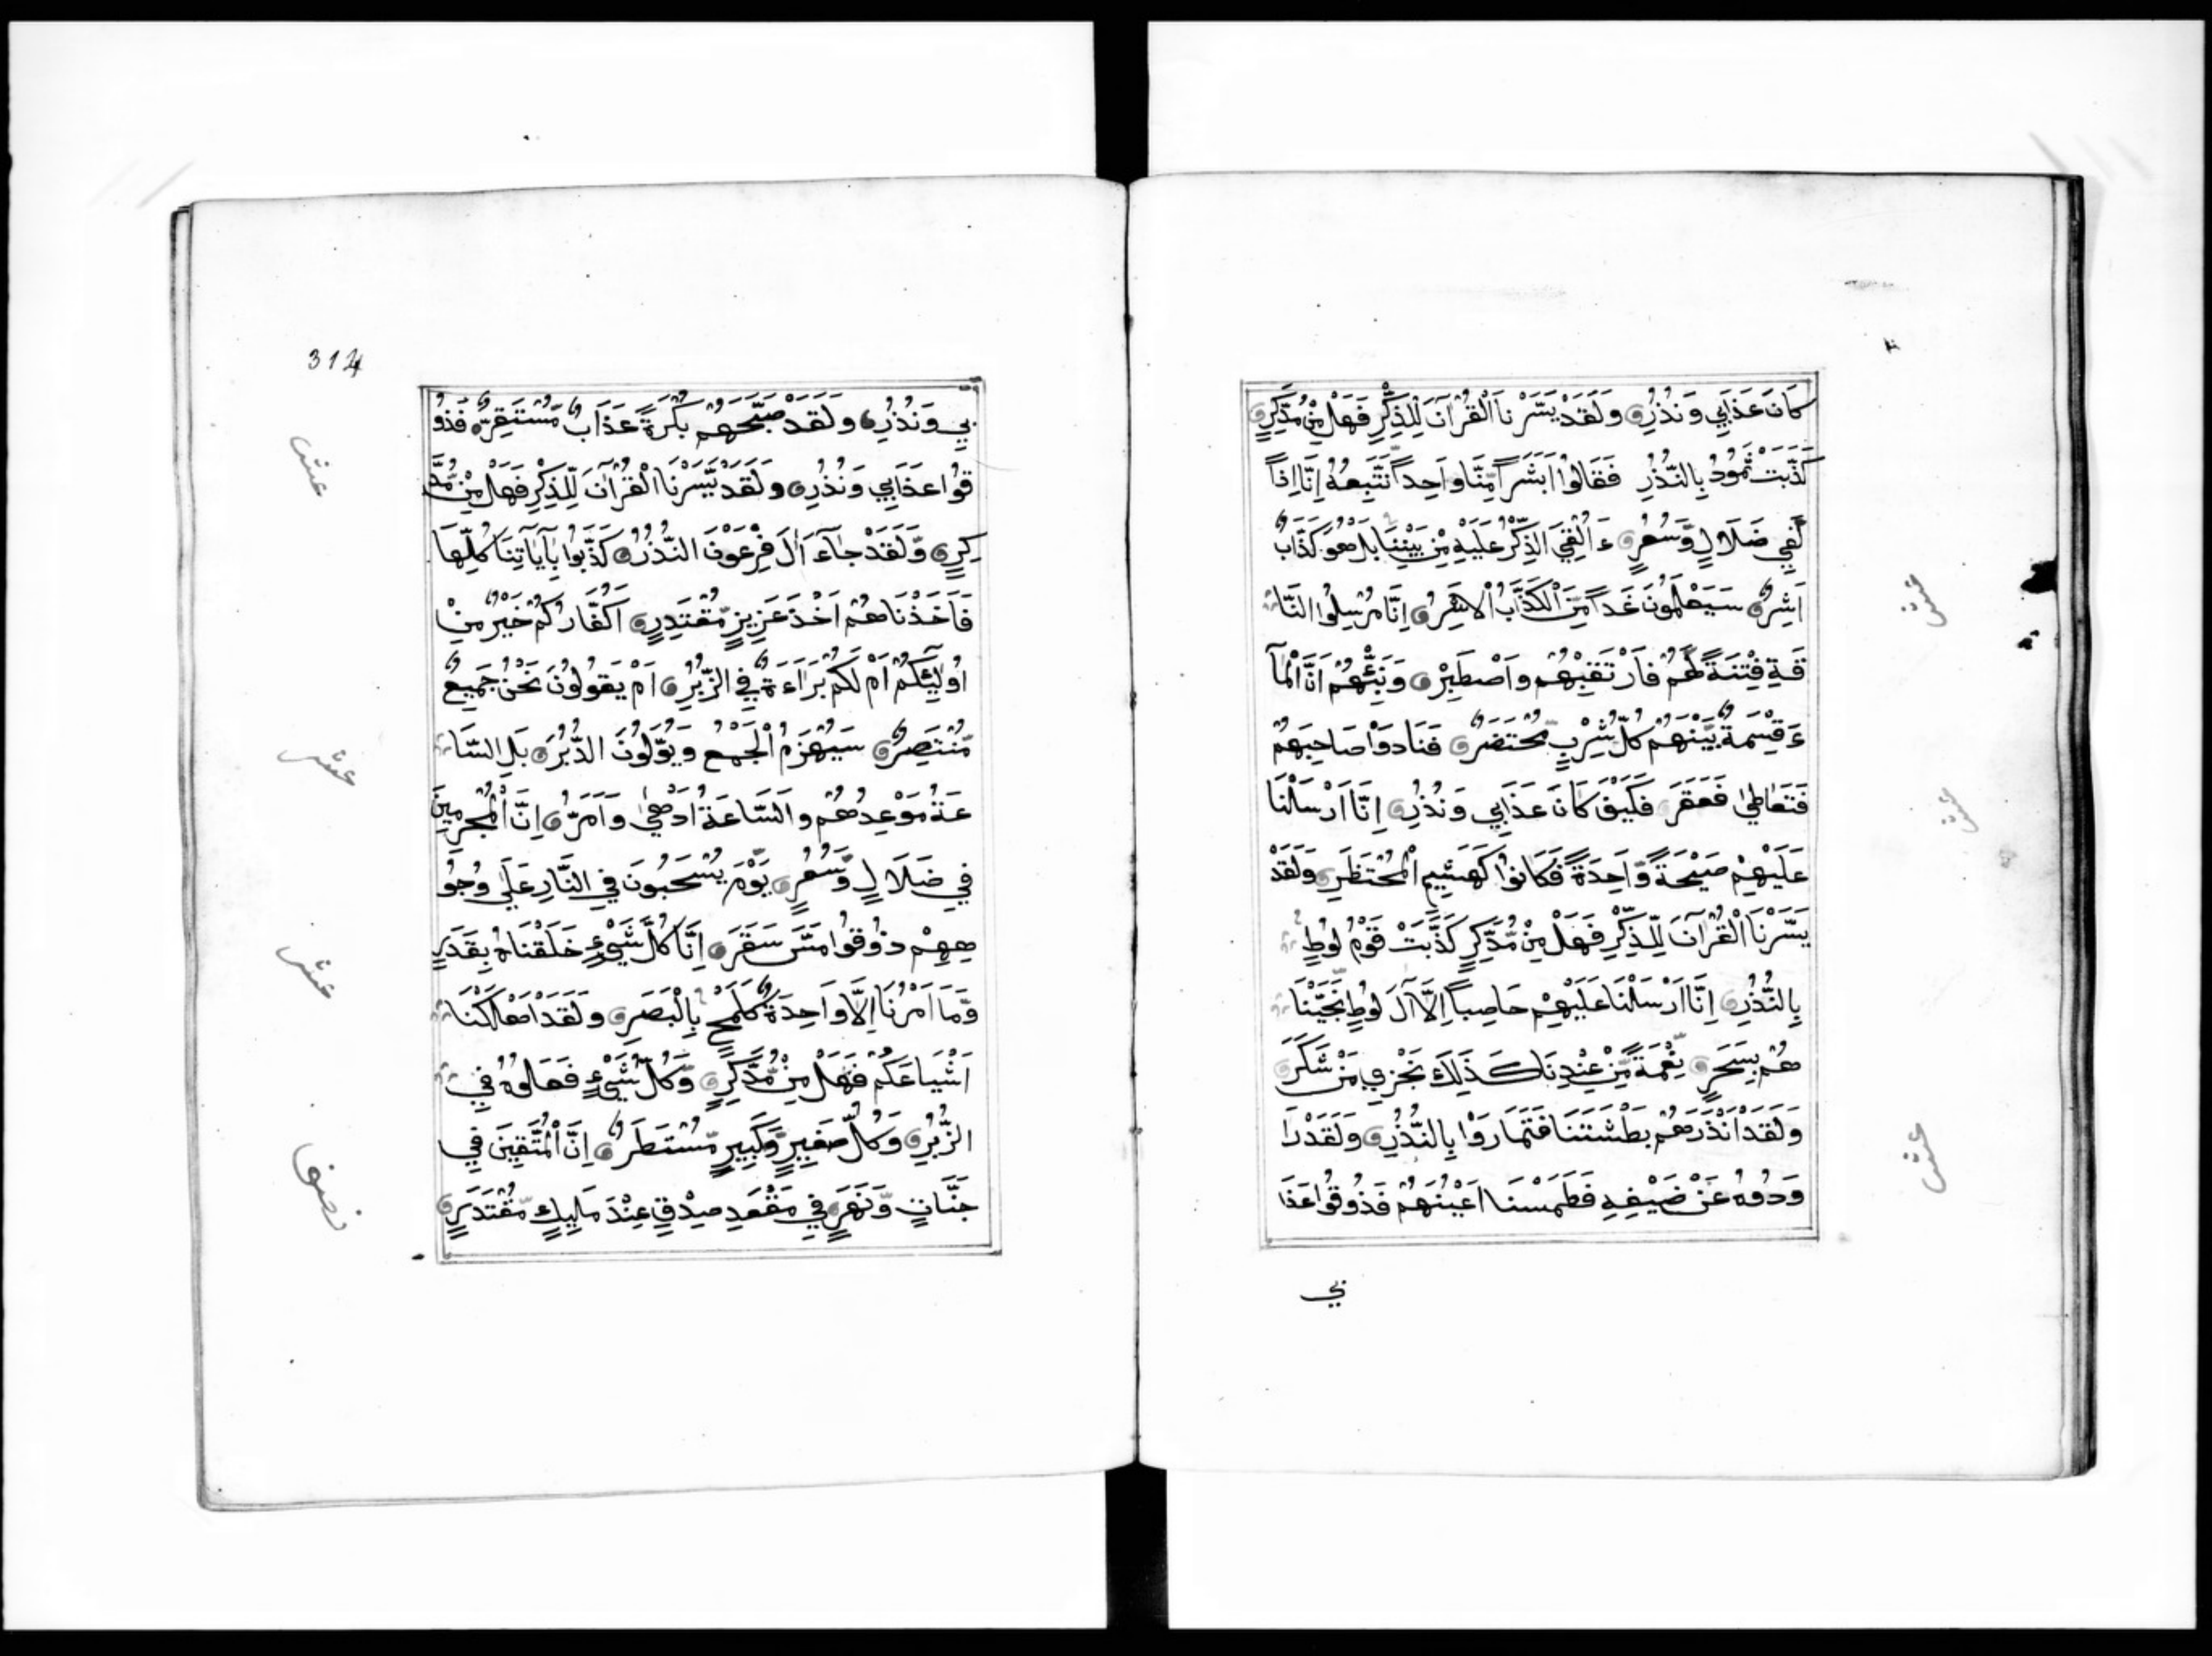 كَانَ عَذَابِي وَنُذُرِ وَلَقَدْ يَسَّرْنَا الْقُرْآنَ لِلذِّكْرِ فَهَلْ مِنْ مُدَّكِرٍ
كَذَّبَتْ ثَمُودُ بِالنُّذُرِ فَقَالُوا أَبَشَراً مِّنَّا وَاحِداً نَتَّبِعُهُ إِنَّا إِذاً
لَّفِي ضَلَالٍ وَّسُعُرٍ ءَ أُلْقِيَ الذِّكْرُ عَلَيْهِ مِنْ بَيْنِنَا بَلْ هُوَ كَذَّابٌ
أَشِرٌ سَيَعْلَمُونَ غَداً مِّنَ الْكَذَّابُ الْأَشِرُ إِنَّا مُرْسِلُوا النَّا
قَةِ فِتْنَةً لَّهُمْ فَارْتَقِبْهُمْ وَاصْطَبِرْ وَنَبِّئْهُمْ أَنَّ الْمَآ
ءَ قِسْمَةٌ بَيْنَهُمْ كُلُّ شِرْبٍ مُّحْتَضَرٌ فَنَادَوْا صَاحِبَهُمْ
فَتَعَاطَىٰ فَعَقَرَ فَكَيْفَ كَانَ عَذَابِي وَنُذُرِ إِنَّا أَرْسَلْنَا
عَلَيْهِمْ صَيْحَةً وَّاحِدَةً فَكَانُوا كَهَشِيمِ الْمُحْتَظِرِ وَلَقَدْ
يَسَّرْنَا الْقُرْآنَ لِلذِّكْرِ فَهَلْ مِنْ مُّدَّكِرٍ كَذَّبَتْ قَوْمُ لُوطٍ
بِالنُّذُرِ إِنَّا أَرْسَلْنَا عَلَيْهِمْ حَاصِباً إِلَّا آلَ لُوطٍ نَّجَّيْنَا
هُمْ بِسَحَرٍ نِّعْمَةً مِّنْ عِنْدِنَا كَذَلِكَ نَجْزِي مَنْ شَكَرَ
وَلَقَدْ أَنْذَرَهُمْ بَطْشَتَنَا فَتَمَارَوْا بِالنُّذُرِ وَلَقَدْ رَا
وَدُوهُ عَنْ ضَيْفِهِ فَطَمَسْنَا أَعْيُنَهُمْ فَذُوقُوا عَذَا
بي
عشر
عشر
عشر
314
بِي وَنُذُرِ وَلَقَدْ صَبَّحَهُمْ بُكْرَةً عَذَابٌ مُّسْتَقِرٌّ فَذُو
قُوا عَذَابِي وَنُذُرِ وَلَقَدْ يَسَّرْنَا الْقُرْآنَ لِلذِّكْرِ فَهَلْ مِنْ مُّدَّ
كِرٍ وَّلَقَدْ جَآءَ اٰلَ فِرْعَوْنَ النُّذُرُ كَذَّبُوا بِآيَاتِنَا كُلِّهَا
فَأَخَذْنَاهُمْ أَخْذَ عَزِيزٍ مُّقْتَدِرٍ أَكُفَّارُكُمْ خَيْرٌ مِنْ
أُولَٰئِكُمْ أَمْ لَكُمْ بَرَاءَةٌ فِي الزُّبُرِ أَمْ يَقُولُونَ نَحْنُ جَمِيعٌ
مُّنْتَصِرٌ سَيُهْزَمُ الْجَمْعُ وَيُوَلُّونَ الدُّبُرَ بَلِ السَّا
عَةُ مَوْعِدُهُمْ وَالسَّاعَةُ أَدْهَىٰ وَأَمَرُّ إِنَّ الْمُجْرِمِينَ
فِي ضَلَالٍ وَّسُعُرٍ يَوْمَ يُسْحَبُونَ فِي النَّارِ عَلَىٰ وُجُو
هِهِمْ ذُوقُوا مَسَّ سَقَرَ إِنَّا كُلَّ شَيْءٍ خَلَقْنَاهُ بِقَدَرٍ
وَّمَا أَمْرُنَا إِلَّا وَاحِدَةٌ كَلَمْحٍ بِالْبَصَرِ وَلَقَدْ أَهْلَكْنَا
أَشْيَاعَكُمْ فَهَلْ مِنْ مُّدَّكِرٍ وَّكُلُّ شَيْءٍ فَعَلُوهُ فِي
الزُّبُرِ وَكُلُّ صَغِيرٍ وَّكَبِيرٍ مُّسْتَطَرٌ إِنَّ الْمُتَّقِينَ فِي
جَنَّاتٍ وَّنَهَرٍ فِي مَقْعَدِ صِدْقٍ عِنْدَ مَلِيكٍ مُّقْتَدِرٍ
عشر
عشر
عشر
نصف